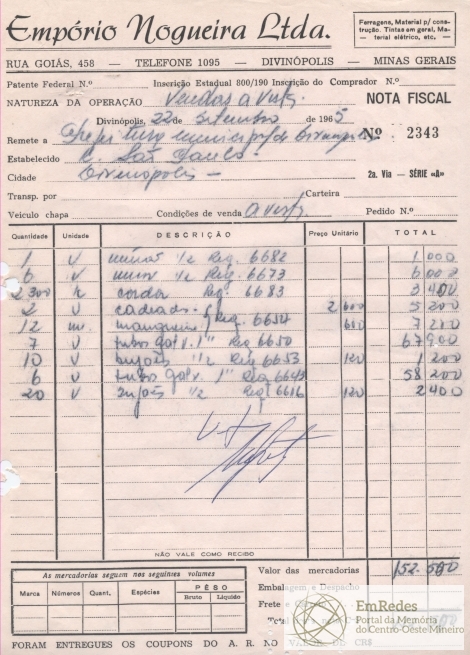 Empório Nogueira Ltda.
Ferragens, Material p/ cons-
trução. Tintas em geral, Ma-
terial elétrico, etc. —
RUA GOIÁS, 458 — TELEFONE 1095 — DIVINÓPOLIS — MINAS GERAIS
Patente Federal N.º Inscrição Estadual 800/190 Inscrição do Comprador N.º
NATUREZA DA OPERAÇÃO Vendas a vista NOTA FISCAL
Divinópolis, 22 de setembro de 1965
Remete a Prefeitura municipal de Divinópolis Nº 2343
Estabelecido R. São Paulo -
Cidade Divinopolis - 2a. Via — SÉRIE «A»
Transp. por Carteira
Veículo chapa Condições de venda a vista Pedido N.º
Quantidade Unidade DESCRIÇÃO Preço Unitário TOTAL
1 v 1/2 Req. 6682 1,000
6 v 1/2 Req. 6673 6 000
2 300 k corda Req. 6683 3 400
2 v cadeados 2 600 5 200
12 m. mangueira Req. 6654 600 7 200
7 v tubos galv. 1" Req 6650 67 900
10 v bujões 1/2 Req 6653 120 1 200
6 v tubos galv. 1" Req 6643 58 200
20 v bujões 1/2 Req 6616 120 2 400
NÃO VALE COMO RECIBO
As mercadorias seguem nos seguintes volumes
Marca Números Quant. Espécies PÊSO
Bruto Líquido
Valor das mercadorias 152.500
Embalagem e Despacho
Frete e
Total
FORAM ENTREGUES OS COUPONS DO A. R. NO VALOR DE CR$
EmRedes
Portal da Memória
do Centro-Oeste Mineiro